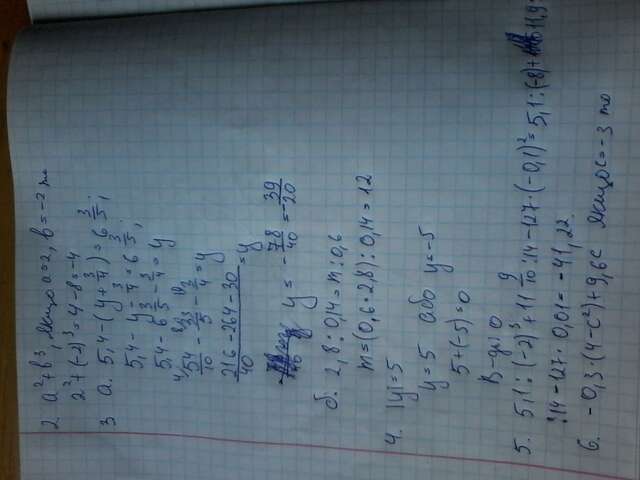 2. a² + b³, якщо a = 2, b = -2 то
2² + (-2)³ = 4 - 8 = -4
3 а. 5,4 - (y + 3/4) = 6 3/5;
5,4 - y - 3/4 = 6 3/5;
5,4 - 6 3/5 - 3/4 = y
54/10 - 33/5 - 3/4 = y
216 - 264 - 30 / 40 = y
y = - 78/40 = - 39/20
б. 2,8 : 0,14 = m : 0,6
m = (0,6 · 2,8) : 0,14 = 12
4. |y| = 5
y = 5 або y = -5
5 + (-5) = 0
В-дь: 0
5. 5,1 : (-2)³ + 11 9/10 : 14 - 127 · (-0,1)² = 5,1 : (-8) + 11,9 :
: 14 - 127 · 0,01 = -41,22.
6. -0,3 · (4 - c²) + 9,6c якщо c = -3 то